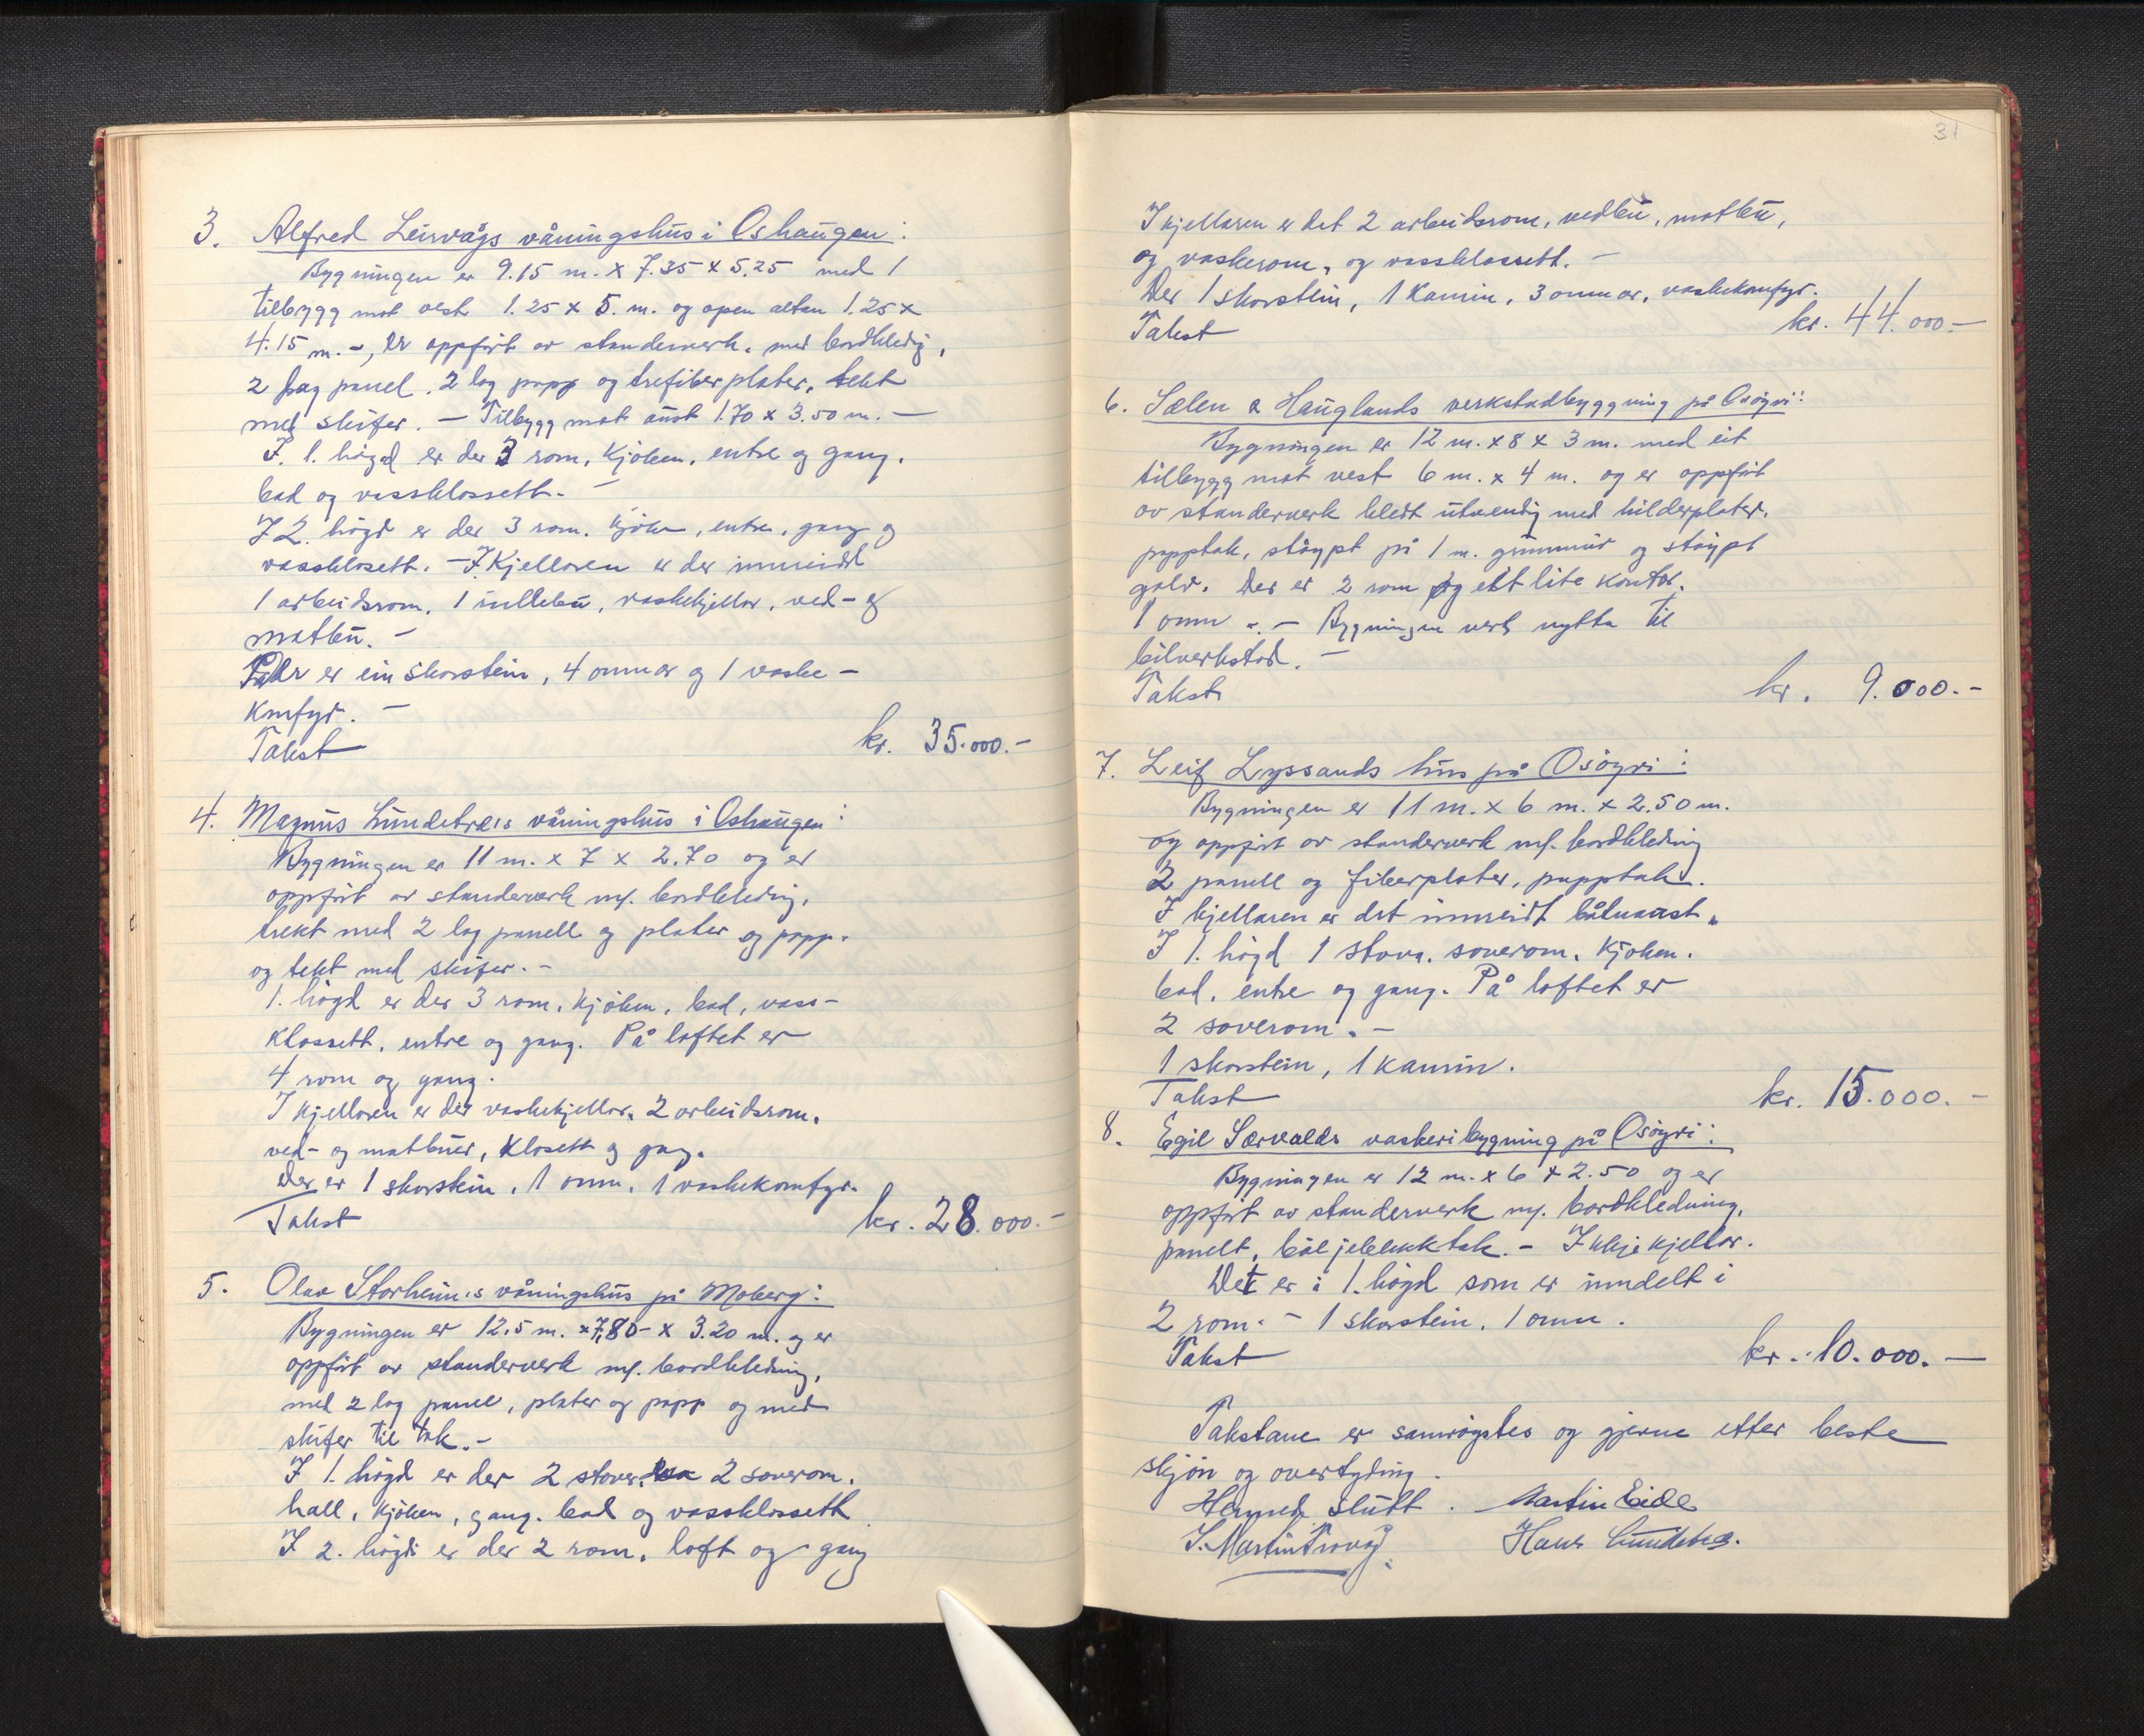 3. Alfred Leirvågs våningshus i Oshaugen:
Bygningen er 9.15 m. x 7.35 x 5.25 med 1
tilbygg mot vest 1.25 x 5. m. og open altan 1.25 x
4.15 m. -, er oppført av standerverk, med bordkledig,
2 lag panel. 2 lag papp og trefiberplater, tekt
med skifer. - Tilbygg mot aust 1.70 x 3.50 m. -
I. 1. høgd er der 3 rom, kjøken, entre og gang,
bad og vassklossett. -
I 2. høgd er der 3 rom. kjøken, entre, gang og
vassklosett. - I Kjellaren er der innreidd
1 arbeidsrom, 1 rullebu, vaskekjellar, ved- og
matbu. -
Der er ein skorstein, 4 omnar og 1 vaske-
komfyr. -
Takst kr. 35.000.-
4. Magnus Lundetræ,s våningshus i Oshaugen:
Bygningen er 11 m. x 7 x 2.70 og er
oppført av standerverk m/. bordkledning,
trekt med 2 lag panell og plater og papp.
og tekt med skifer. -
1. høgd er der 3 rom, kjøken, bad, vass-
klossett, entre og gang. På loftet er
4 rom og gang.
I kjellaren er der vaskekjellar, 2 arbeidsrom,
ved- og matbuer, klosett og gang.
Der er 1 skorstein, 1 omn, 1 vaskekomfyr.
Takst kr. 28.000.-
5. Olav Storheim,s våningshus på Moberg:
Bygningen er 12,5 m. x 7,80 - x 3.20 m. og er
oppført av standerverk m/. bordkledning,
med 2 lag panel, plater og papp og med
skifer til tak. -
I 1. høgd er der 2 stover, 2 soverom,
hall, kjøken, gang, bad og vassklossett.
I 2. høgd er der 2 rom, loft og gang
31
I kjellaren er det 2 arbeidsrom, vedbu, matbu,
og vaskerom, og vassklossett. -
Der 1 skorstein, 1 Kamin, 3 omnar, vaskekomfyr.
Takst kr. 44.000.-
6. Sælen & Hauglands verkstadbyggning på Osøyri:
Bygningen er 12 m. x 8 x 3 m. med eit
tilbygg mot vest 6 m. x 4 m. og er oppført
av standerverk kledt utvendig med hilderplater,
papptak, støypt på 1 m. grunnmur og støypt
golv. Der er 2 rom og ett lite kontor.
1 omn -. - Bygningen vert nytta til
bilverkstad. -
Takst kr. 9.000.-
7. Leif Lyssands hus på Osøyri:
Bygningen er 11 m. x 6 m. x 2.50 m.
og oppført av standerverk m/. bordkledning
2 panell og fiberplater, papptak.
I kjellaren er det innreidt båtnaust.
I 1. høgd 1 stova, soverom, kjøken.
bad, entre og gang. På loftet er
2 soverom. -
1 skorstein, 1 kamin.
Takst kr. 15.000.-
8. Egil Særvolds vaskeribygning på Osøyri:
Bygningen er 12 m. x 6 x 2.50 og er
oppført av standerverk m/. bordkledning,
panelt, bøljeblekktak. - Ikkje kjellar.
Det er i 1. høgd som er inndelt i
2 rom. - 1 skorstein, 1 omn.
Takst kr. 10.000.-
Takstane er samrøystes og gjerne etter beste
skjøn og overtyding.
Hermed slutt. Martin Eide
Hans Lundetræ.